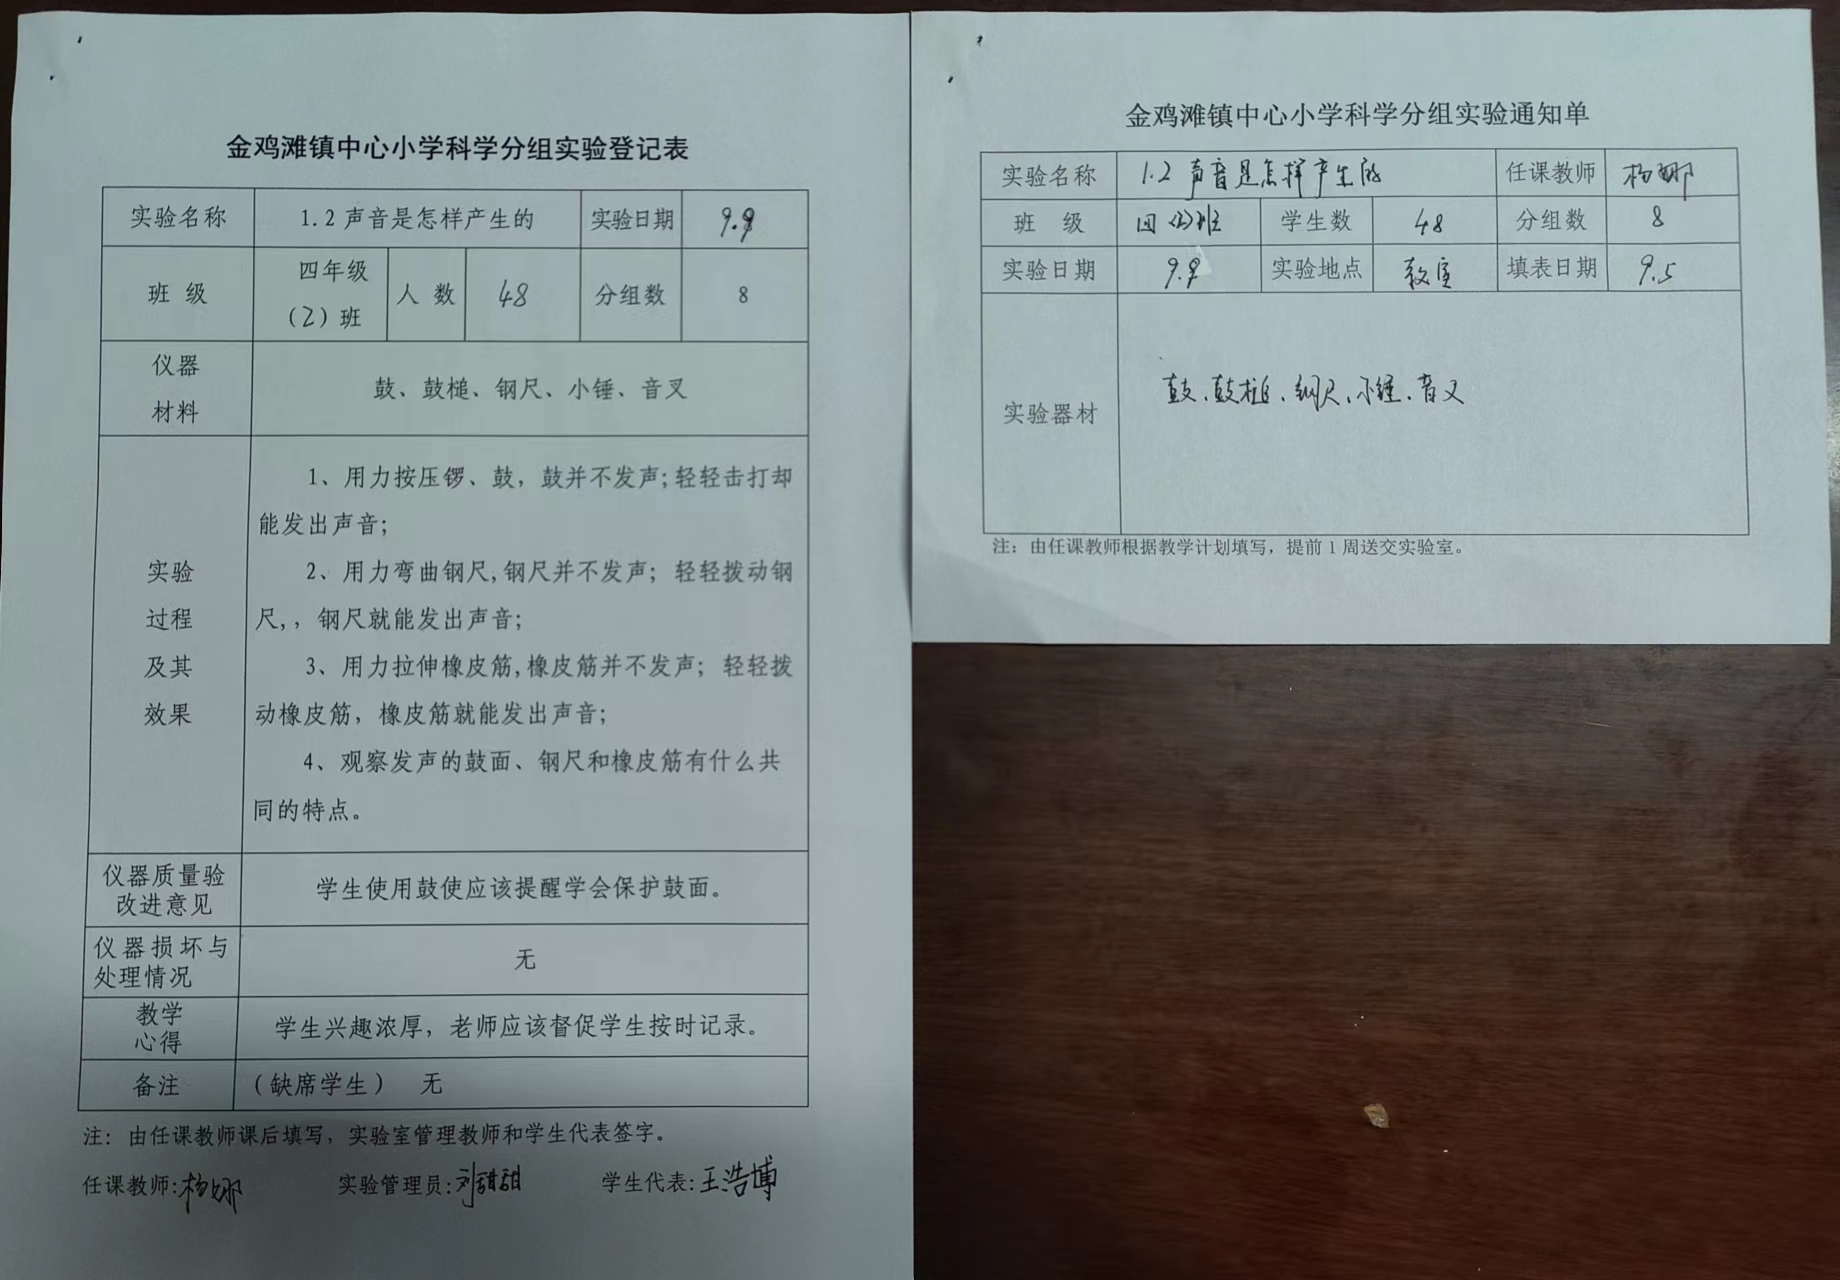 金鸡滩镇中心小学科学分组实验登记表
实验名称 1.2声音是怎样产生的 实验日期 9.9
班 级 四年级（2）班 人 数 48 分组数 8
仪器材料 鼓、鼓槌、钢尺、小锤、音叉
实验过程及其效果
1、用力按压锣、鼓，鼓并不发声；轻轻击打却
能发出声音；
2、用力弯曲钢尺,钢尺并不发声；轻轻拨动钢
尺,，钢尺就能发出声音；
3、用力拉伸橡皮筋,橡皮筋并不发声；轻轻拨
动橡皮筋，橡皮筋就能发出声音；
4、观察发声的鼓面、钢尺和橡皮筋有什么共
同的特点。
仪器质量验改进意见 学生使用鼓使应该提醒学会保护鼓面。
仪器损坏与处理情况 无
教学心得 学生兴趣浓厚，老师应该督促学生按时记录。
备注 （缺席学生） 无
注：由任课教师课后填写，实验室管理教师和学生代表签字。
任课教师:杨娜 实验管理员:刘甜甜 学生代表:王浩博
金鸡滩镇中心小学科学分组实验通知单
实验名称 1.2 声音是怎样产生的 任课教师 杨娜
班 级 四(2)班 学生数 48 分组数 8
实验日期 9.9 实验地点 教室 填表日期 9.5
实验器材 鼓、鼓槌、钢尺、小锤、音叉
注：由任课教师根据教学计划填写，提前1周送交实验室。